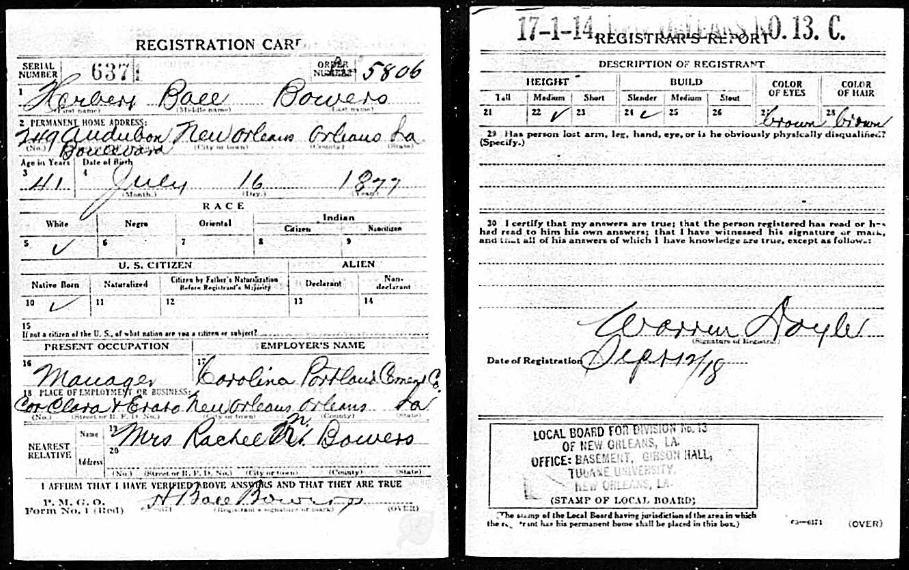 REGISTRATION CARD
SERIAL NUMBER 6371 ORDER NUMBER A 5806
1 Herbert Ball Bowers
(First name) (Middle name) (Last name)
2 PERMANENT HOME ADDRESS:
249 Audubon New Orleans Orleans La
Boulevard
(No.) (City or town) (County) (State)
Age in Years Date of Birth
3 41 4 July 16 1877
(Month.) (Day.) (Year.)
RACE
White Negro Oriental Indian
Citizen Noncitizen
5 ✓ 6 7 8 9
U. S. CITIZEN ALIEN
Native Born Naturalized Citizen by Father's Naturalization Before Registrant's Majority Declarant Non-declarant
10 ✓ 11 12 13 14
15
If not a citizen of the U. S., of what nation are you a citizen or subject?
PRESENT OCCUPATION EMPLOYER'S NAME
16 Manager 17 Carolina Portland Cement Co.
18 PLACE OF EMPLOYMENT OR BUSINESS:
Cor Clara & Erato New Orleans Orleans La
(No.) (Street or R. F. D. No.) (City or town) (County) (State)
NEAREST RELATIVE Name 19 Mrs Rachel Bowers
Address 20
(No.) (Street or R. F. D. No.) (City or town) (County) (State)
I AFFIRM THAT I HAVE VERIFIED ABOVE ANSWERS AND THAT THEY ARE TRUE
P. M. G. O.
Form No. 1 (Red) H Ball Bowers
(Registrant's signature or mark) (OVER)
17-1-14 NO. 13. C.
REGISTRAR'S REPORT
DESCRIPTION OF REGISTRANT
HEIGHT BUILD COLOR OF EYES COLOR OF HAIR
Tall Medium Short Slender Medium Stout
21 22 ✓ 23 24 ✓ 25 26 27 brown 28 brown
29 Has person lost arm, leg, hand, eye, or is he obviously physically disqualified?
(Specify.)
30 I certify that my answers are true; that the person registered has read or has
had read to him his own answers; that I have witnessed his signature or mark,
and that all of his answers of which I have knowledge are true, except as follows:
Warren Doyle
(Signature of Registrar)
Date of Registration Sept 12/18
LOCAL BOARD FOR DIVISION No. 13
OF NEW ORLEANS, LA.
OFFICE: BASEMENT, GIBSON HALL,
TULANE UNIVERSITY.
NEW ORLEANS, LA.
(STAMP OF LOCAL BOARD)
(The stamp of the Local Board having jurisdiction of the area in which
the registrant has his permanent home shall be placed in this box.)
03—6171 (OVER)